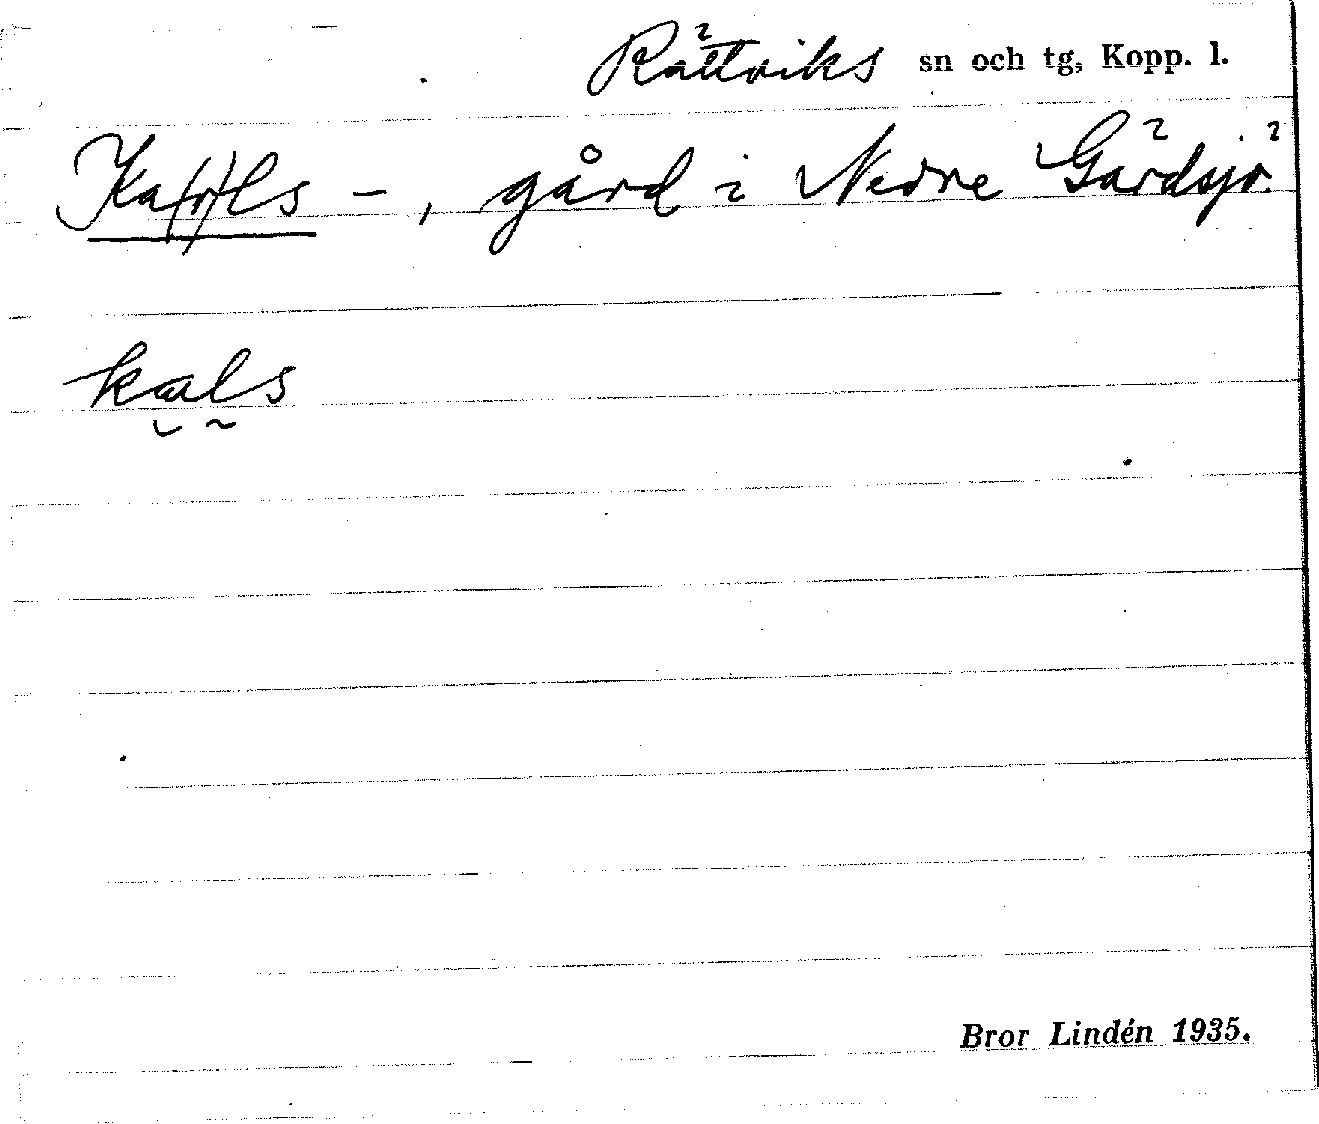 Rättviks sn och tg, Kopp. l.
Ka(r)ls -, gård i Nedre Gärdsjö.
kals
Bror Lindén 1935.